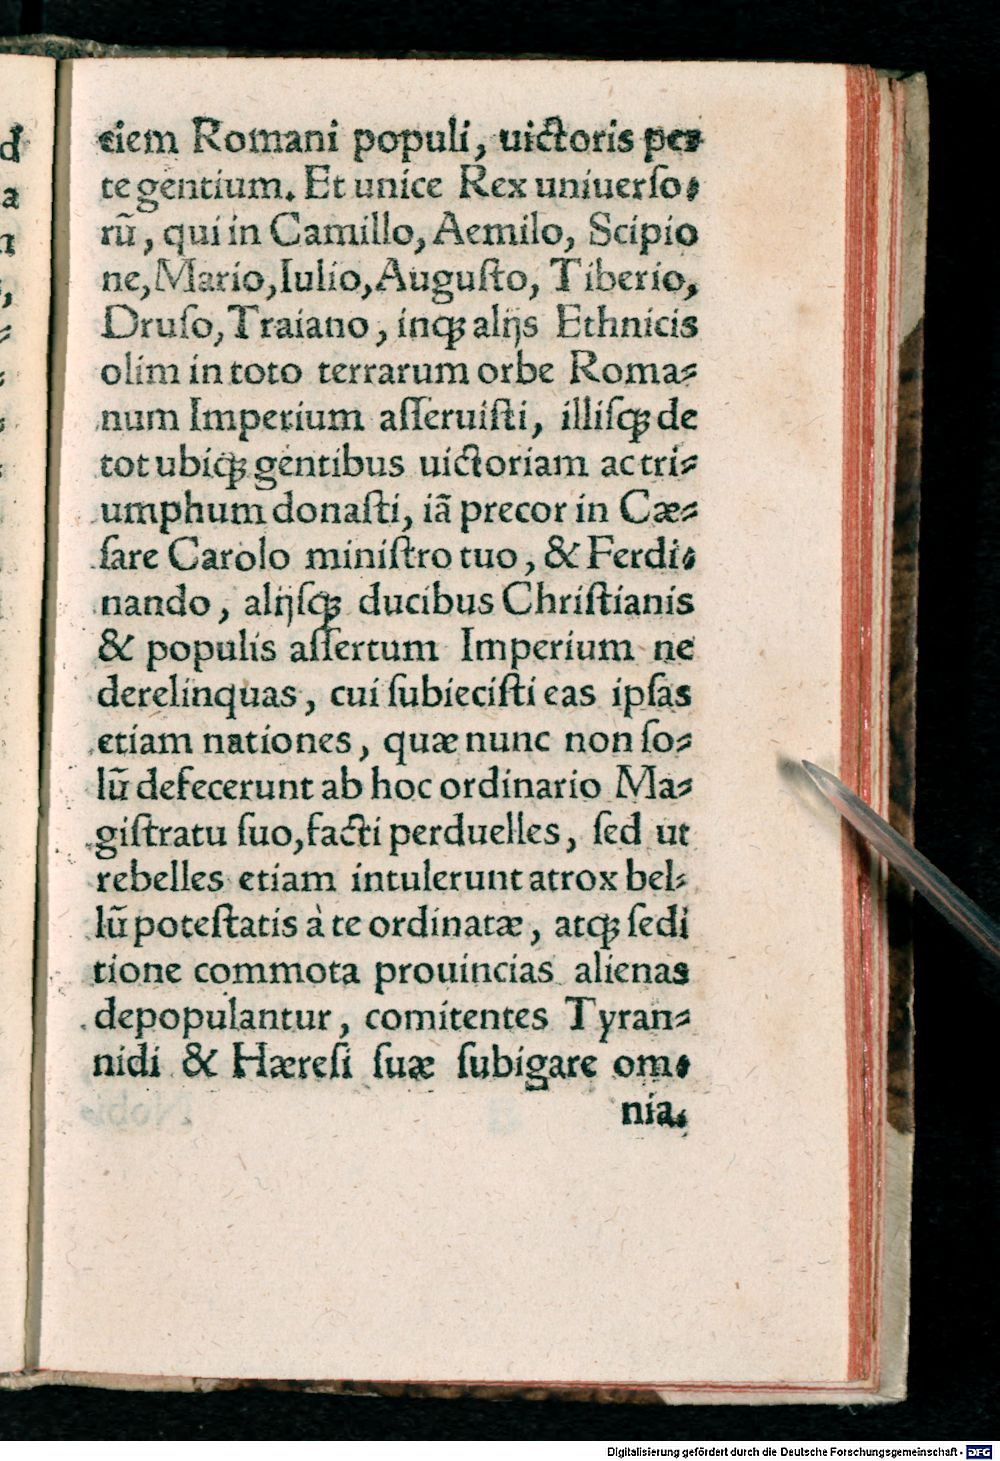 ciem Romani populi, uictoris per
te gentium. Et unice Rex uniuerſo⸗
rū, qui in Camillo, Aemilo, Scipio
ne, Mario, Iulio, Auguſto, Tiberio,
Druſo, Traiano, inqꝫ alijs Ethnicis
olim in toto terrarum orbe Roma⸗
num Imperium aſſeruiſti, illiſqꝫ de
tot ubiqꝫ gentibus uictoriam ac tri⸗
umphum donaſti, iã precor in Cæ⸗
ſare Carolo miniſtro tuo, & Ferdi⸗
nando, alijſqꝫ ducibus Chriſtianis
& populis aſſertum Imperium ne
derelinquas, cui ſubieciſti eas ipſas
etiam nationes, quæ nunc non ſo⸗
lū defecerunt ab hoc ordinario Ma⸗
giſtratu ſuo, facti perduelles, ſed ut
rebelles etiam intulerunt atrox bel⸗
lū poteſtatis à te ordinatæ, atqꝫ ſedi
tione commota prouincias alienas
depopulantur, comitentes Tyran⸗
nidi & Hæreſi ſuæ ſubigare om⸗
nia.
Digitalisierung gefördert durch die Deutsche Forschungsgemeinschaft - DFG